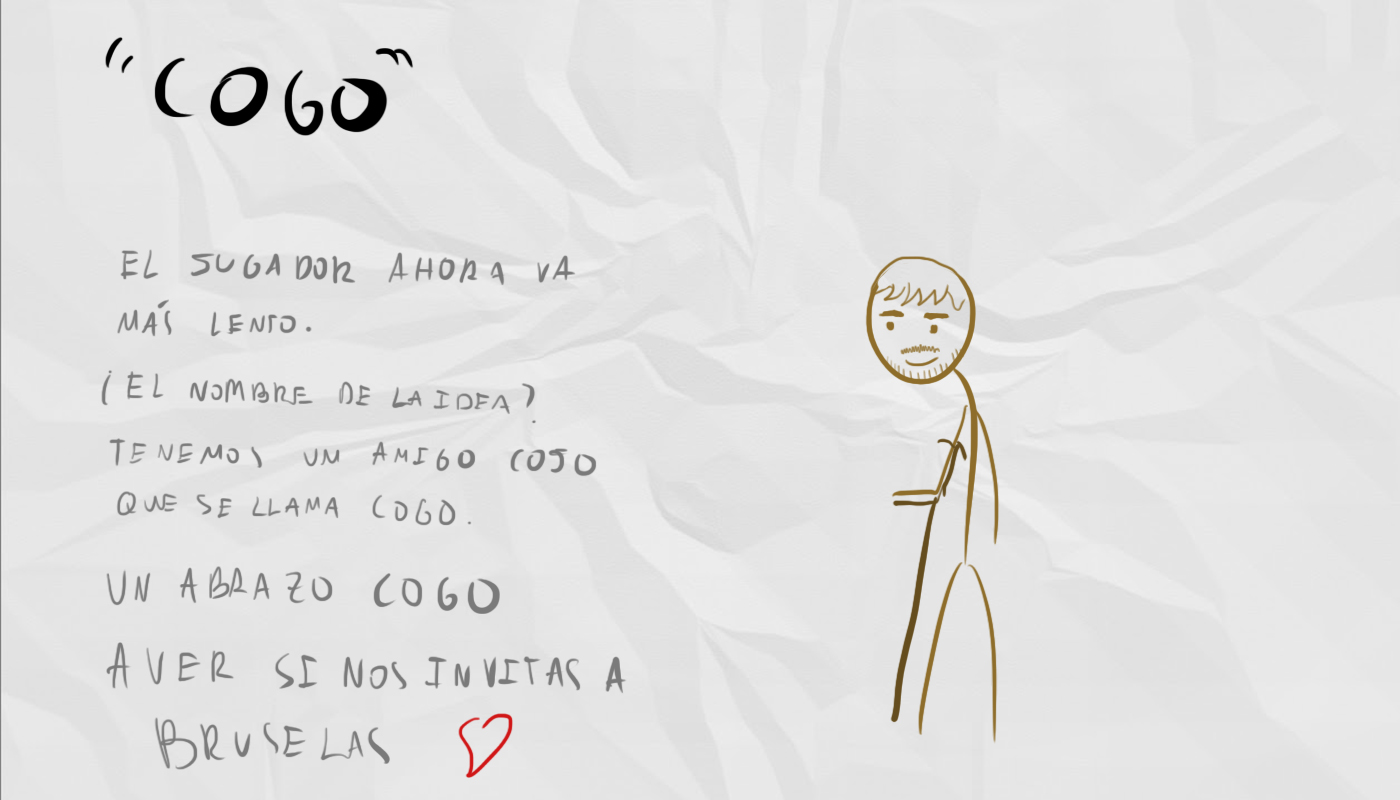 "COGO"
EL JUGADOR AHORA VA
MÁS LENTO.
(EL NOMBRE DE LA IDEA?
TENEMOS UN AMIGO COJO
QUE SE LLAMA COGO.
UN ABRAZO COGO
AVER SI NOS INVITAS A
BRUSELAS